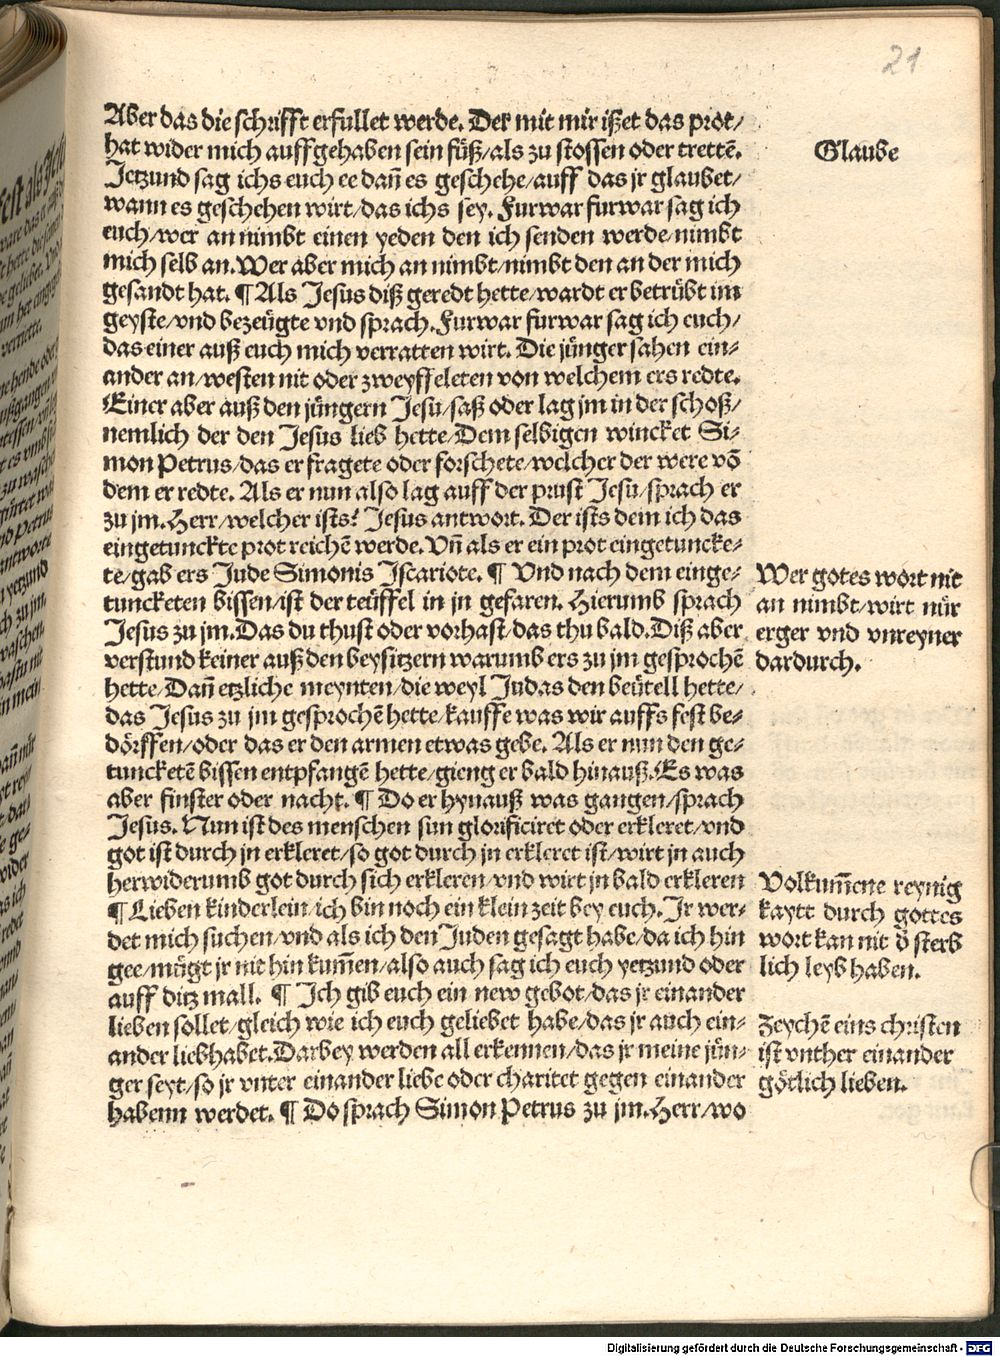 21
Aber das die schrifft erfullet werde. Der mit mir ißet das prot/
hat wider mich auffgehaben sein füß/als zu stossen oder trettē.
Jetzund sag ichs euch ee dañ es geschehe/auff das jr glaubet/
wann es geschehen wirt/das ichs sey. Furwar furwar sag ich
euch/wer an nimbt einen yeden den ich senden werde/nimbt
mich selb an. Wer aber mich an nimbt/nimbt den an der mich
gesandt hat. ¶ Als Jesus diß geredt hette/wardt er betrübt im
geyste/vnd bezeügte vnd sprach. Furwar furwar sag ich euch/
das einer auß euch mich verratten wirt. Die jünger sahen ein-
ander an/westen nit oder zweyffeleten von welchem ers redte.
Einer aber auß den jüngern Jesu/saß oder lag jm in der schoß/
nemlich der den Jesus lieb hette/Dem selbigen wincket Si-
mon Petrus/das er fragete oder forschete/welcher der were vō
dem er redte. Als er nun also lag auff der prust Jesu/sprach er
zu jm. Herr/welcher ists? Jesus antwort. Der ists dem ich das
eingetunckte prot reichē werde. Vñ als er ein prot eingetuncke-
te/gab ers Jude Simonis Jscariote. ¶ Vnd nach dem einge-
tuncketen bissen/ist der teüffel in jn gefaren. Hierumb sprach
Jesus zu jm. Das du thust oder vorhast/das thu bald. Diß aber
verstund keiner auß den beysitzern warumb ers zu jm gesprochē
hette/Dañ etzliche meynten/die weyl Judas den beütell hette/
das Jesus zu jm gesprochē hette/kauffe was wir auffs fest be-
dörffen/oder das er den armen etwas gebe. Als er nun den ge-
tuncketē bissen entpfangē hette/gieng er bald hinauß. Es was
aber finster oder nacht. ¶ Do er hynauß was gangen/sprach
Jesus. Nun ist des menschen sun glorificiret oder erkleret/vnd
got ist durch jn erkleret/so got durch jn erkleret ist/wirt jn auch
herwiderumb got durch sich erkleren/vnd wirt jn bald erkleren
¶ Lieben kinderlein/ich bin noch ein klein zeit bey euch. Jr wer-
det mich suchen/vnd als ich den Juden gesagt habe/da ich hin
gee/mügt jr nit hin kum̄en/also auch sag ich euch yetzund oder
auff ditz mall. ¶ Ich gib euch ein new gebot/das jr einander
lieben sollet/gleich wie ich euch geliebet habe/das jr auch ein-
ander liebhabet. Darbey werden all erkennen/das jr meine jün-
ger seyt/so jr vnter einander liebe oder charitet gegen einander
habenn werdet. ¶ Do sprach Simon Petrus zu jm. Herr/wo
Glaube
Wer gotes wort nit
an nimbt/wirt nür
erger vnd vnreyner
dardurch.
Volkum̄ene reynig
kaytt durch gottes
wort kan nit d̄ sterb
lich leyb haben.
Zeychē eins christen
ist vnther einander
götlich lieben.
Digitalisierung gefördert durch die Deutsche Forschungsgemeinschaft - DFG